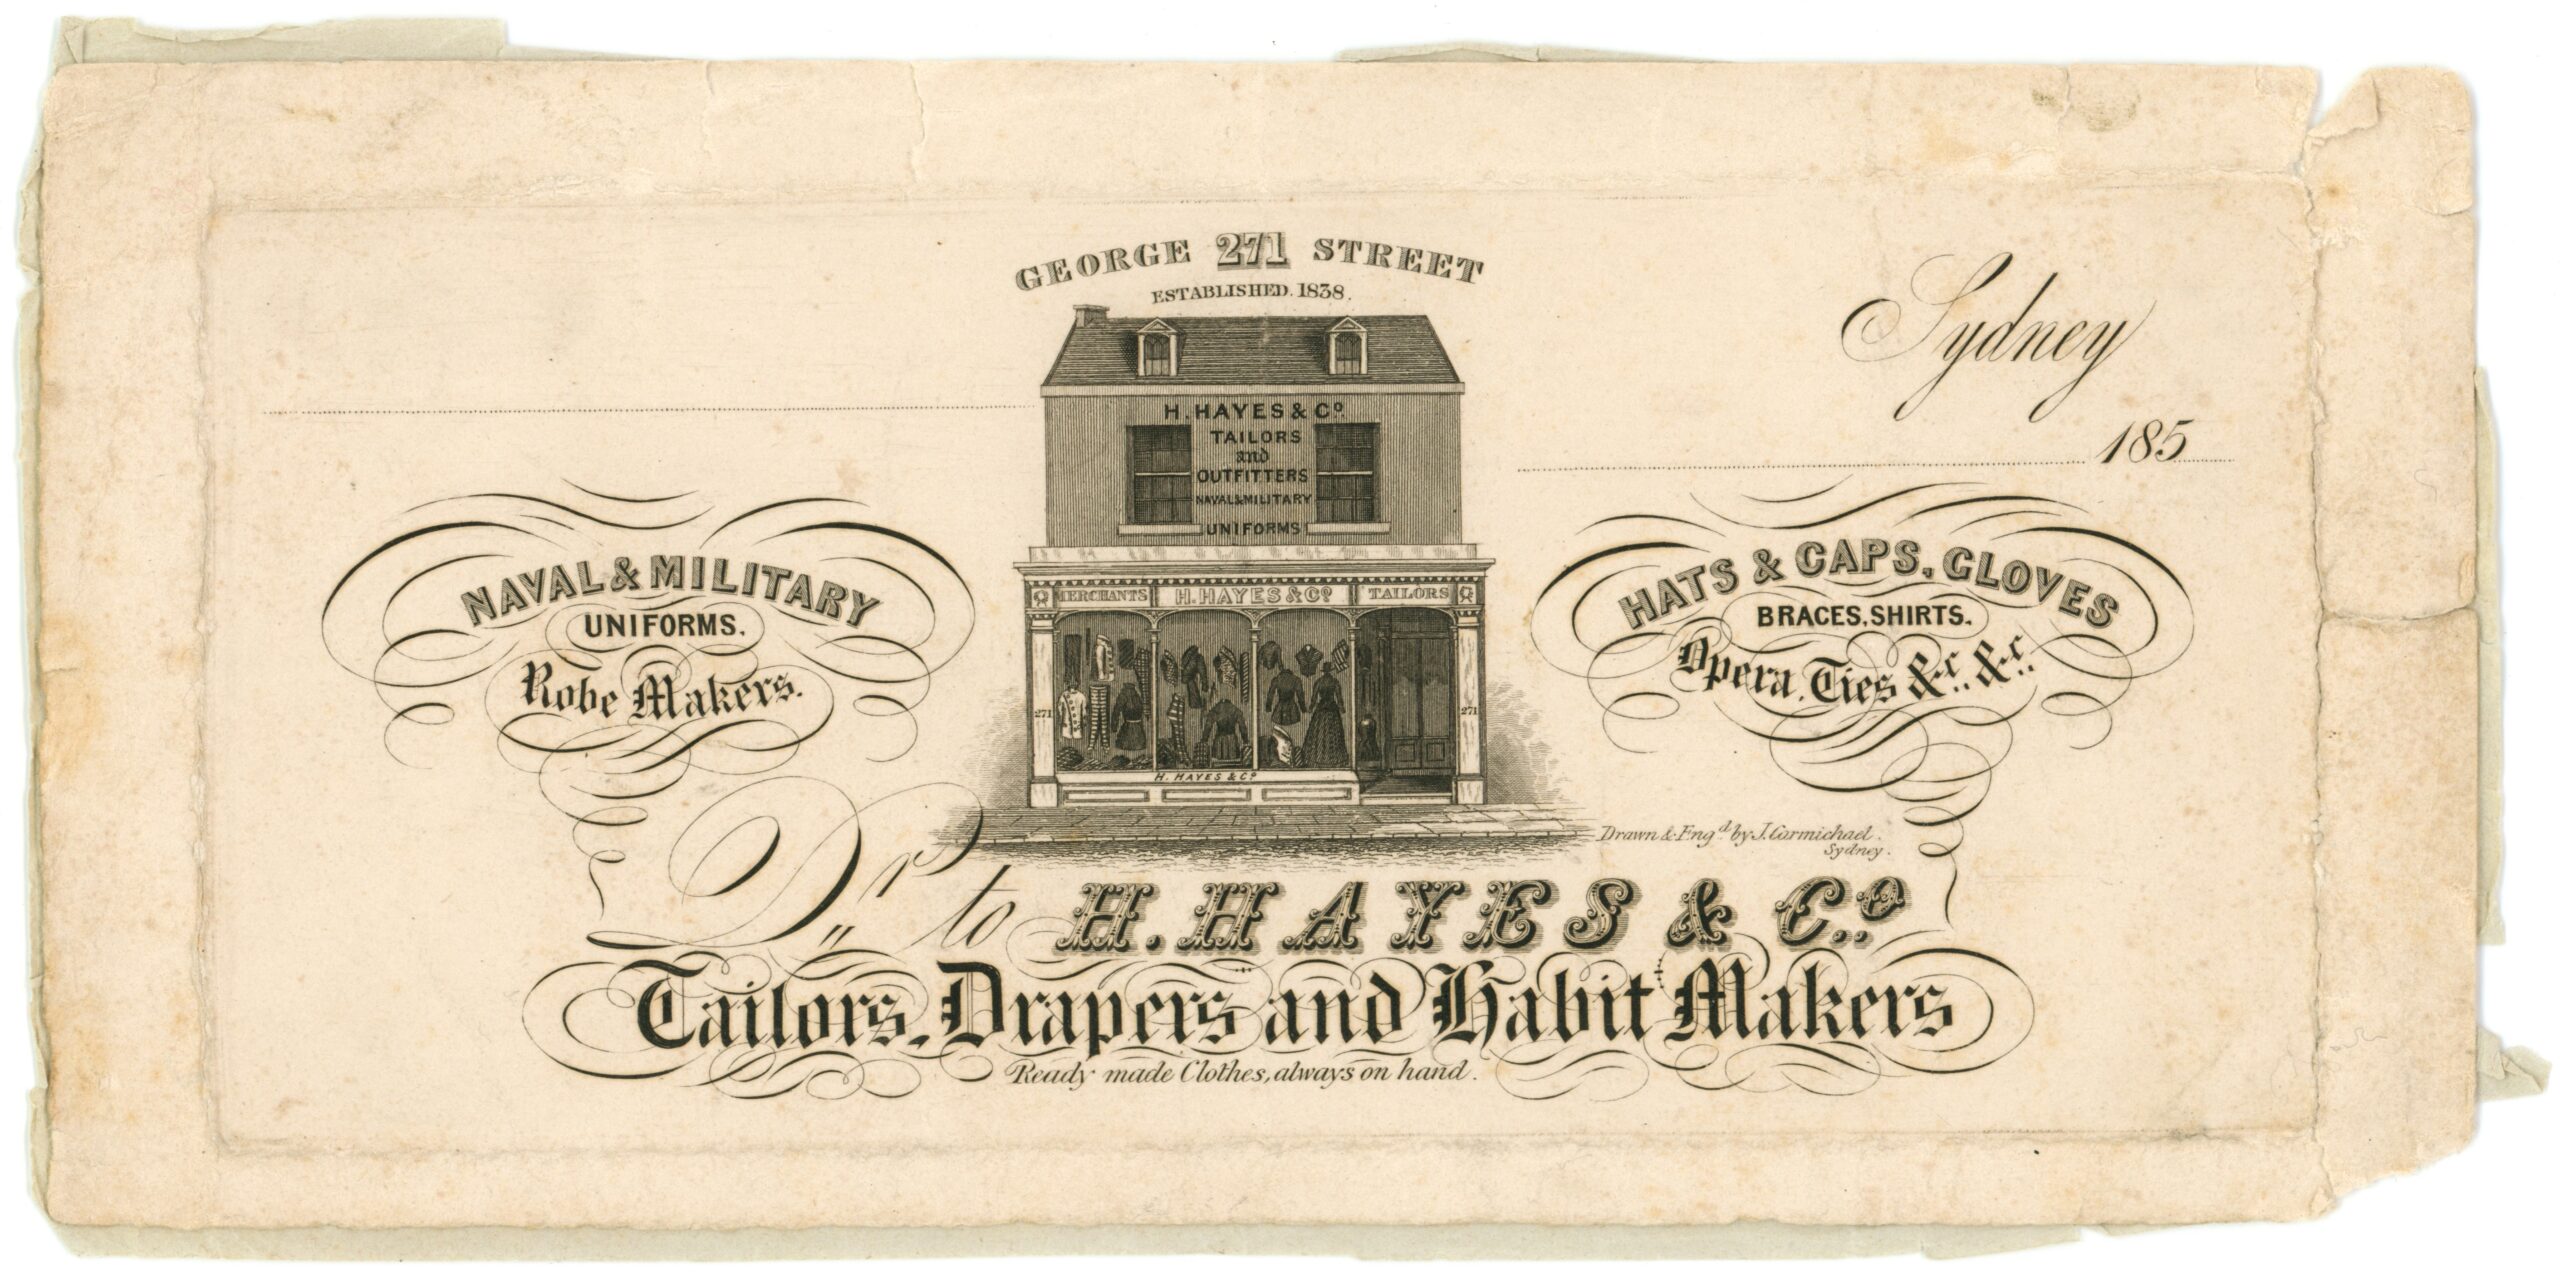 GEORGE 271 STREET
ESTABLISHED. 1838.
Sydney
185
H. HAYES & Co.
TAILORS
and
OUTFITTERS
NAVAL & MILITARY
UNIFORMS
MERCHANTS H. HAYES & Co. TAILORS
271 271
H. HAYES & Co.
NAVAL & MILITARY
UNIFORMS.
Robe Makers.
HATS & CAPS, GLOVES
BRACES, SHIRTS.
Opera, Ties &c. &c.
Drawn & Engd. by J. Carmichael.
Sydney.
Dr. to H. HAYES & Co.
Tailors, Drapers and Habit Makers
Ready made Clothes, always on hand.